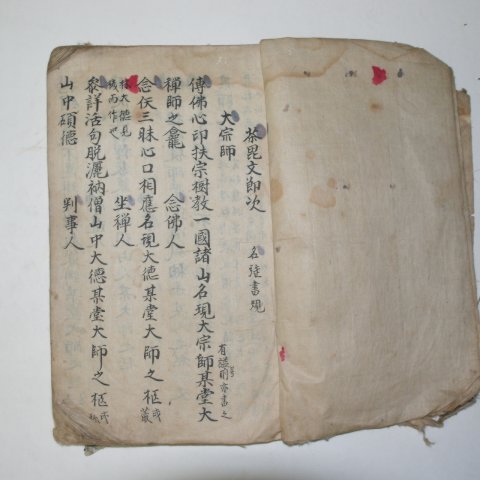 茶毘文節次
名旌書規
大宗師
傳佛心印扶宗樹教一國諸山名現大宗師某堂大
禪師之龕 念佛人
念佛三昧心口相應名現大德某堂大師之柩
坐禪人
叅詳活句脫灑衲僧山中大德某堂大師之柩
山中碩德 判事人